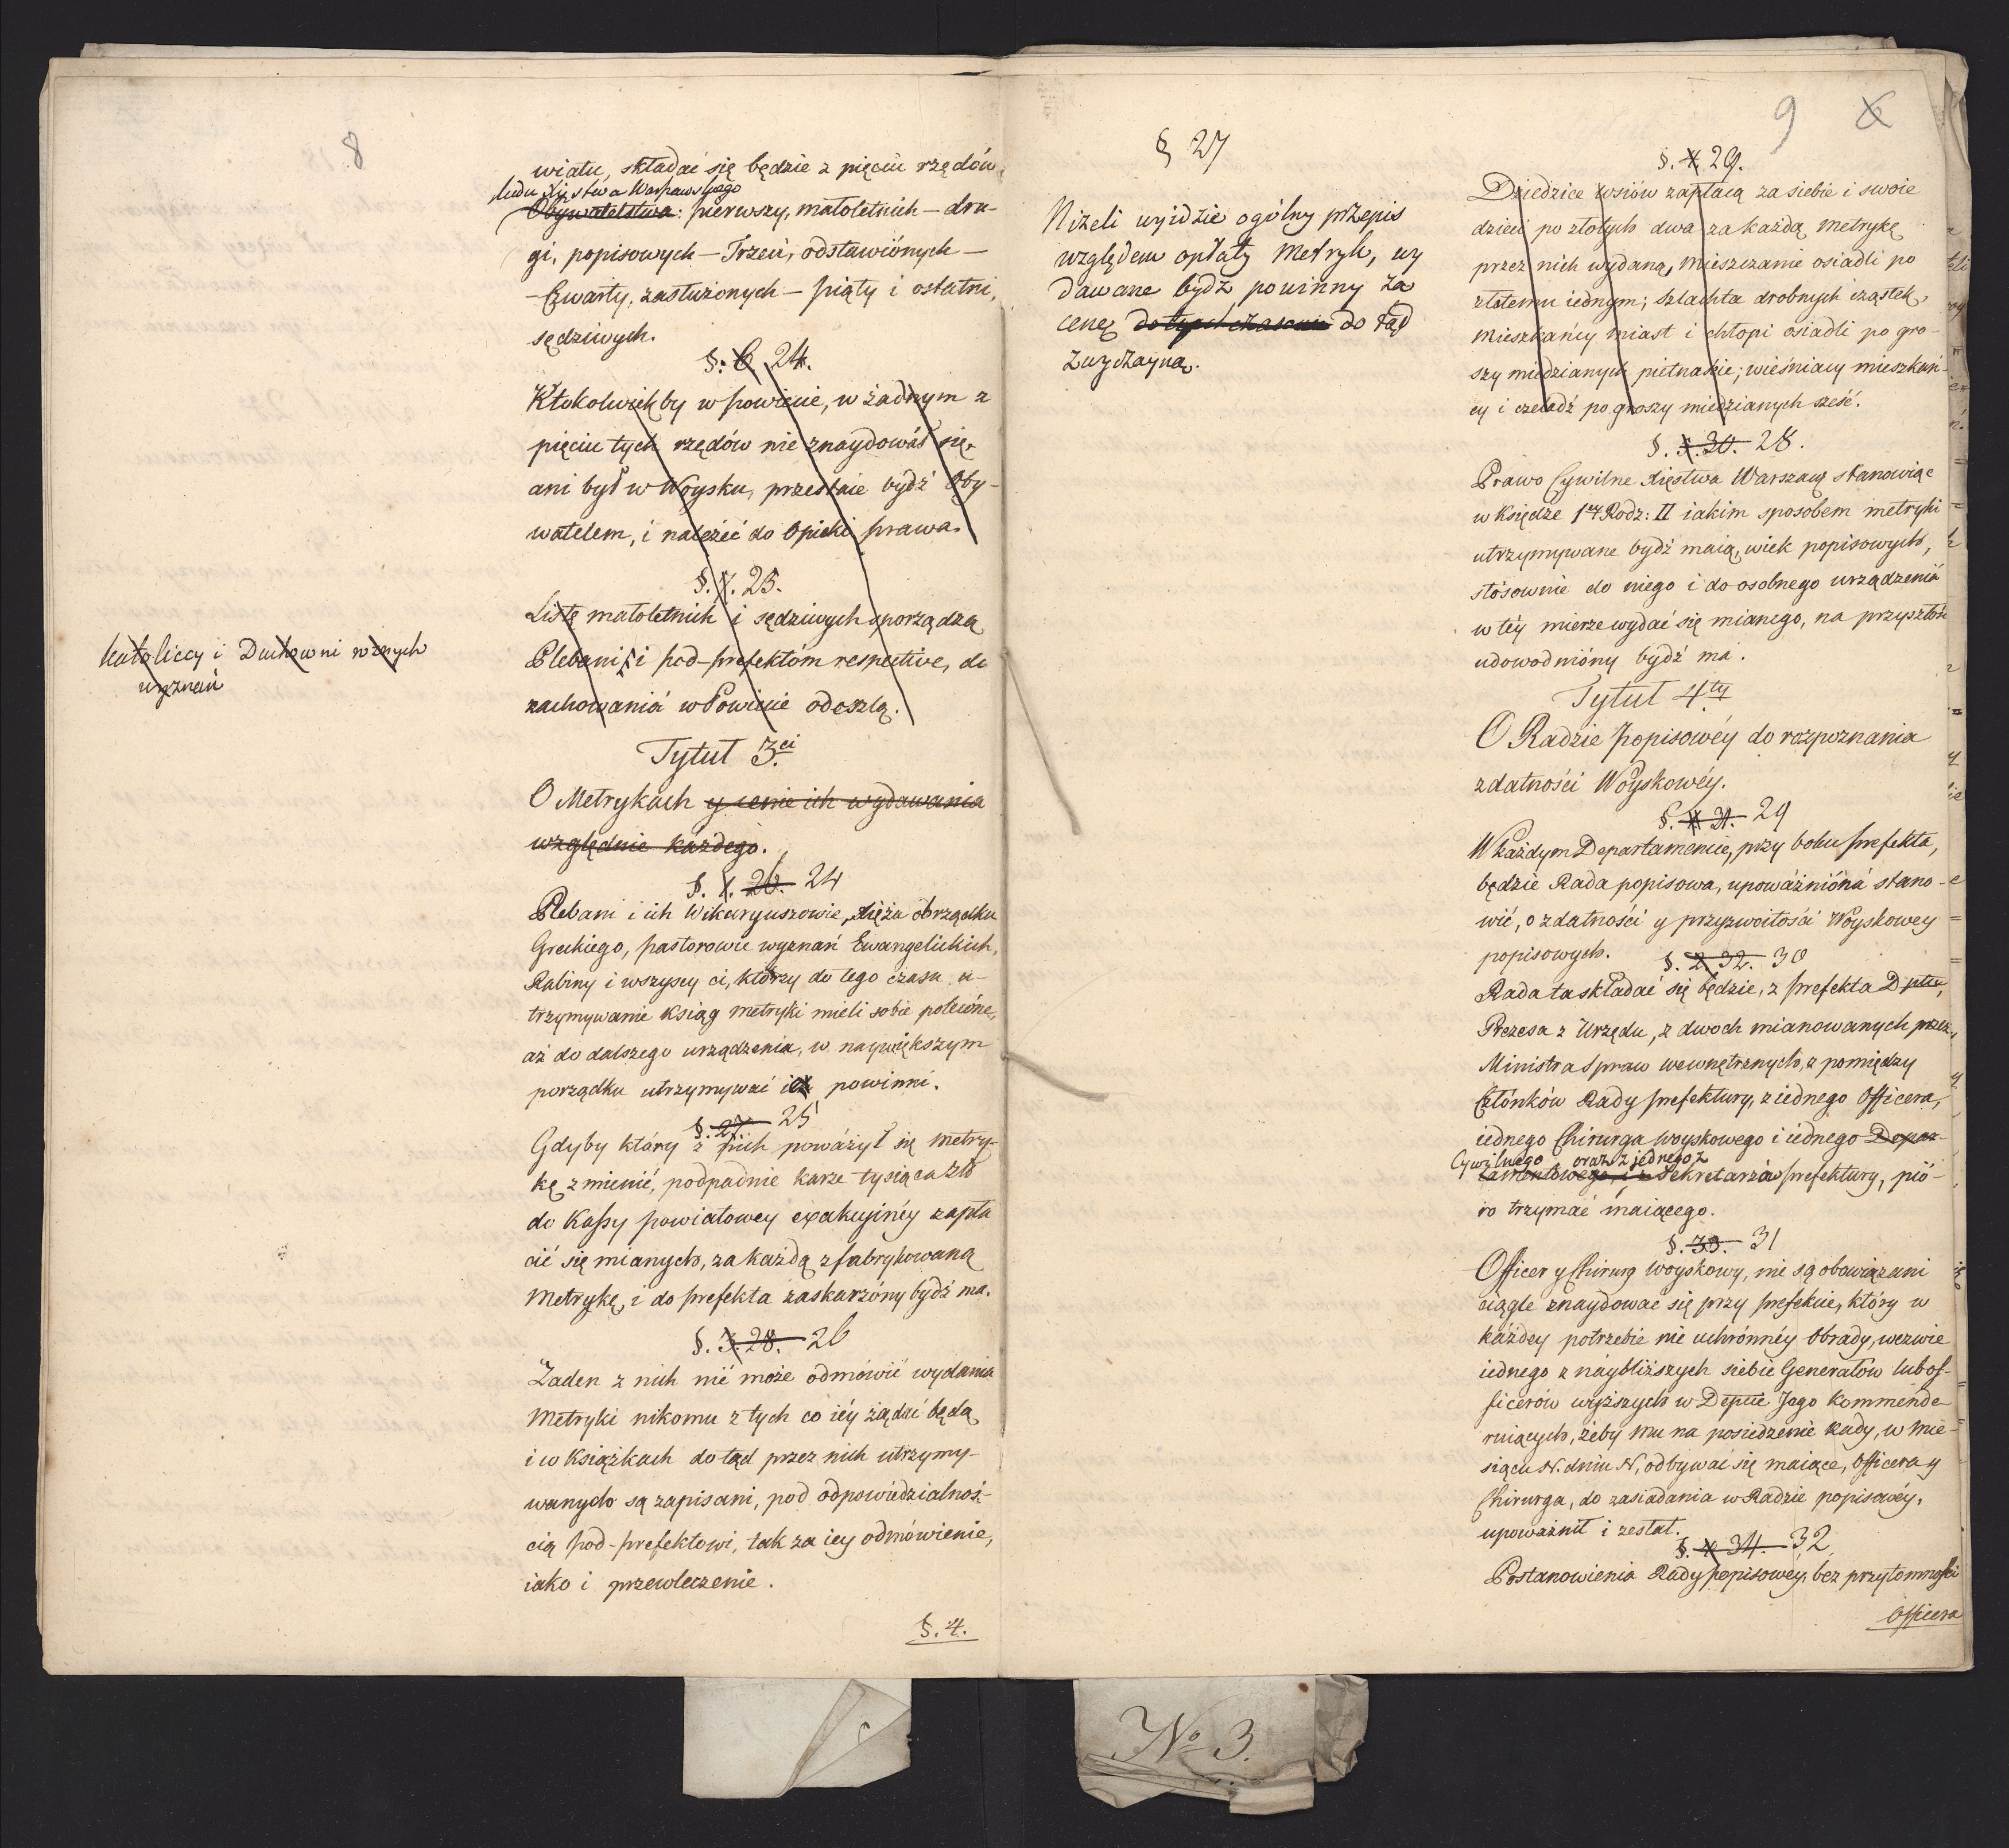 8
wiatu, składać się będzie z pięciu rzędów
ludu Xięstwa Warszawskiego
Obywatelstwa: pierwszy, małoletnich — dru-
gi, popisowych — Trzeci, odstawiónych —
— Czwarty, zasłużonych — piąty i ostatni,
sędziwych.
§. 6 24.
Ktokolwiekby w Powiecie, w żadnym z
pięciu tych rzędów nie znaydował się,
ani był w Woysku, przestaie bydź Oby-
watelem, i należéć do Opieki prawa.
§. 7. 25.
Listę małoletnich i sędziwych sporządzą
Katoliccy i Duchowni róznych
wyznań
Plebani i pod-prefektóm respective, do
zachowaniá w Powiecie odeszlą.
Tytuł 3ci
O Metrykach y cenie ich wydawania
względnie każdego.
§. 1. 26. 24
Plebani i ich Wikaryuszowie, Xięża obrządku
Greckiego, pastorowie wyznań Ewangelickich,
Rabiny i wszyscy ci, którzy do tego czasu u-
trzymywanie ksiąg metryki mieli sobie polecóne,
aż do dalszego urządzenia, w naywiększym
porządku utrzymywać ie powinni.
§. 27. 25
Gdyby który z nich poważył się metry-
kę zmienić, podpadnie karze tysiąca zło
do Kassy powiatowey exakcyinéy zapła
cić się mianych, za każdą zfabrykowaną
Metrykę, i do prefekta zaskarżóny bydź ma.
§. 3. 28. 26
Żaden z nich nié może odmówić wydania
Metryki nikomu z tych co iéy żądać będą
i w Książkach dotąd przez nich utrzymy-
wanych są zapisani, pod odpowiedzialnoś-
cią pod-prefektowi, tak za iey odmówienie,
iako i przewleczenie.
§. 4.
§ 27
Niżeli wyidzie ogólny przepis
względem opłaty Metryk, wy
dawane bydź powinny za
cenę dotychczasową do tąd
zwyczayną.
9
§. 4. 29.
Dziedzice wsiów zapłacą za siebie i swoie
dzieci po złotych dwa za każdą metrykę
przez nich wydaną, mieszczanie osiadli po
złotemu iednym; szlachta drobnych cząstek,
mieszkańcy miast i chłopi osiadli po gro-
szy miedzianych piętnaście; wieśniacy mieszkań-
cy i czeladź po groszy miedzianych sześć.
§. 5. 30. 28.
Prawo Cywilne Xięstwa Warszaw stanowiąc
w Księdze 1ey Rodz: II iakim sposobem metryki
utrzymywane bydź maią, wiek popisowych,
stósownie do niego i do osobnego urządzeniá
w téy mierze wydać się mianego, na przyszłość
udowodnióny bydź ma.
Tytuł 4ty
O Radzie popisowéy do rozpoznania
zdatności Woyskowéy.
§. 31. 29
W każdym Departamencie, przy boku prefekta,
będzie Rada popisowa, upoważnióná stano-
wić, o zdatności y przyzwoitości Woyskowey
popisowych.
§. 2. 32. 30
Rada ta składać się będzie, z prefekta Dptu,
Prezesa z Urzędu, z dwoch mianowanych przez
Ministra Spraw wewnętrznych, z pomiędzy
Członków Rady prefektury, z iednego Officera,
iednego Chirurga woyskowego i iednego Depar-
Cywilnego oraz z jednego z
tamentowego, i z Sekretarzów prefektury, pió-
ro trzymać máiącego.
§. 33. 31
Officer y Chirurg Woyskowy, nie są obowiązani
ciągle znaydować się przy prefekcie, który w
káżdey potrzebie nie uchrónnéy Obrady, wezwie
iednego z náybliższych siebie Generałów lub of-
ficerów wyższych w Depcie Jego kommende-
ruiących, żeby mu na posiedzenie Rady, w mie-
siącu N. dniu N, odbywać się maiące, Officera y
Chirurga, do zasiadania w Radzie popisowéy,
upoważnił i zesłał.
§. 4 34. 32
Postanowienia Rady popisowéy, bez przytomności
Officera
No 3.